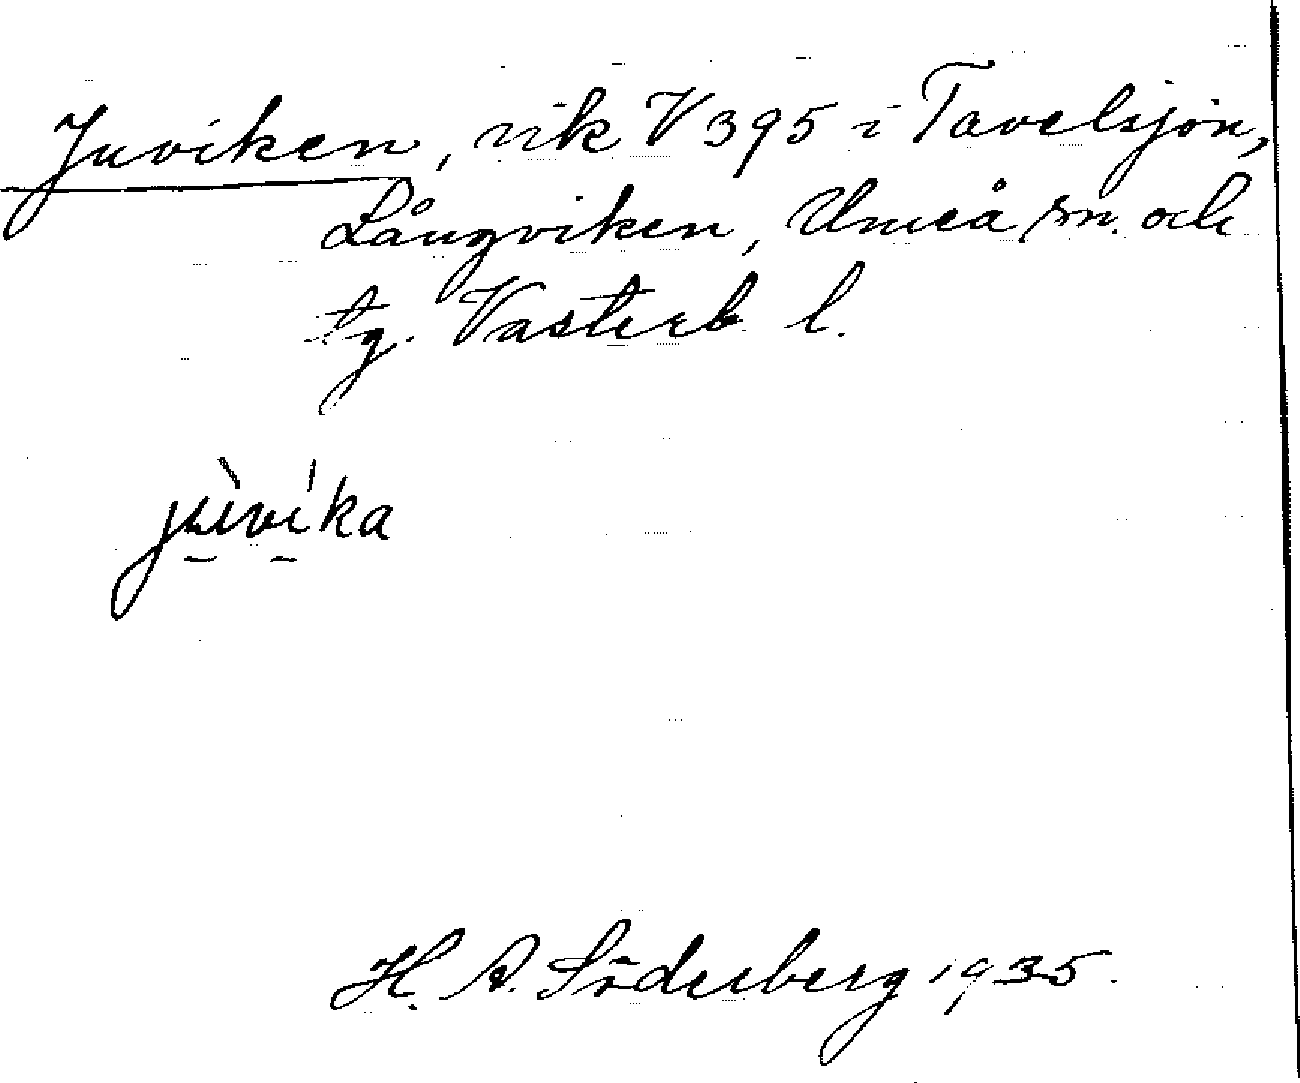 Juviken, vik V 395 i Tavelsjön,
Långviken, Umeå sn. och
tg. Västerb l.
jùvíka
H. A. Söderberg 1935.